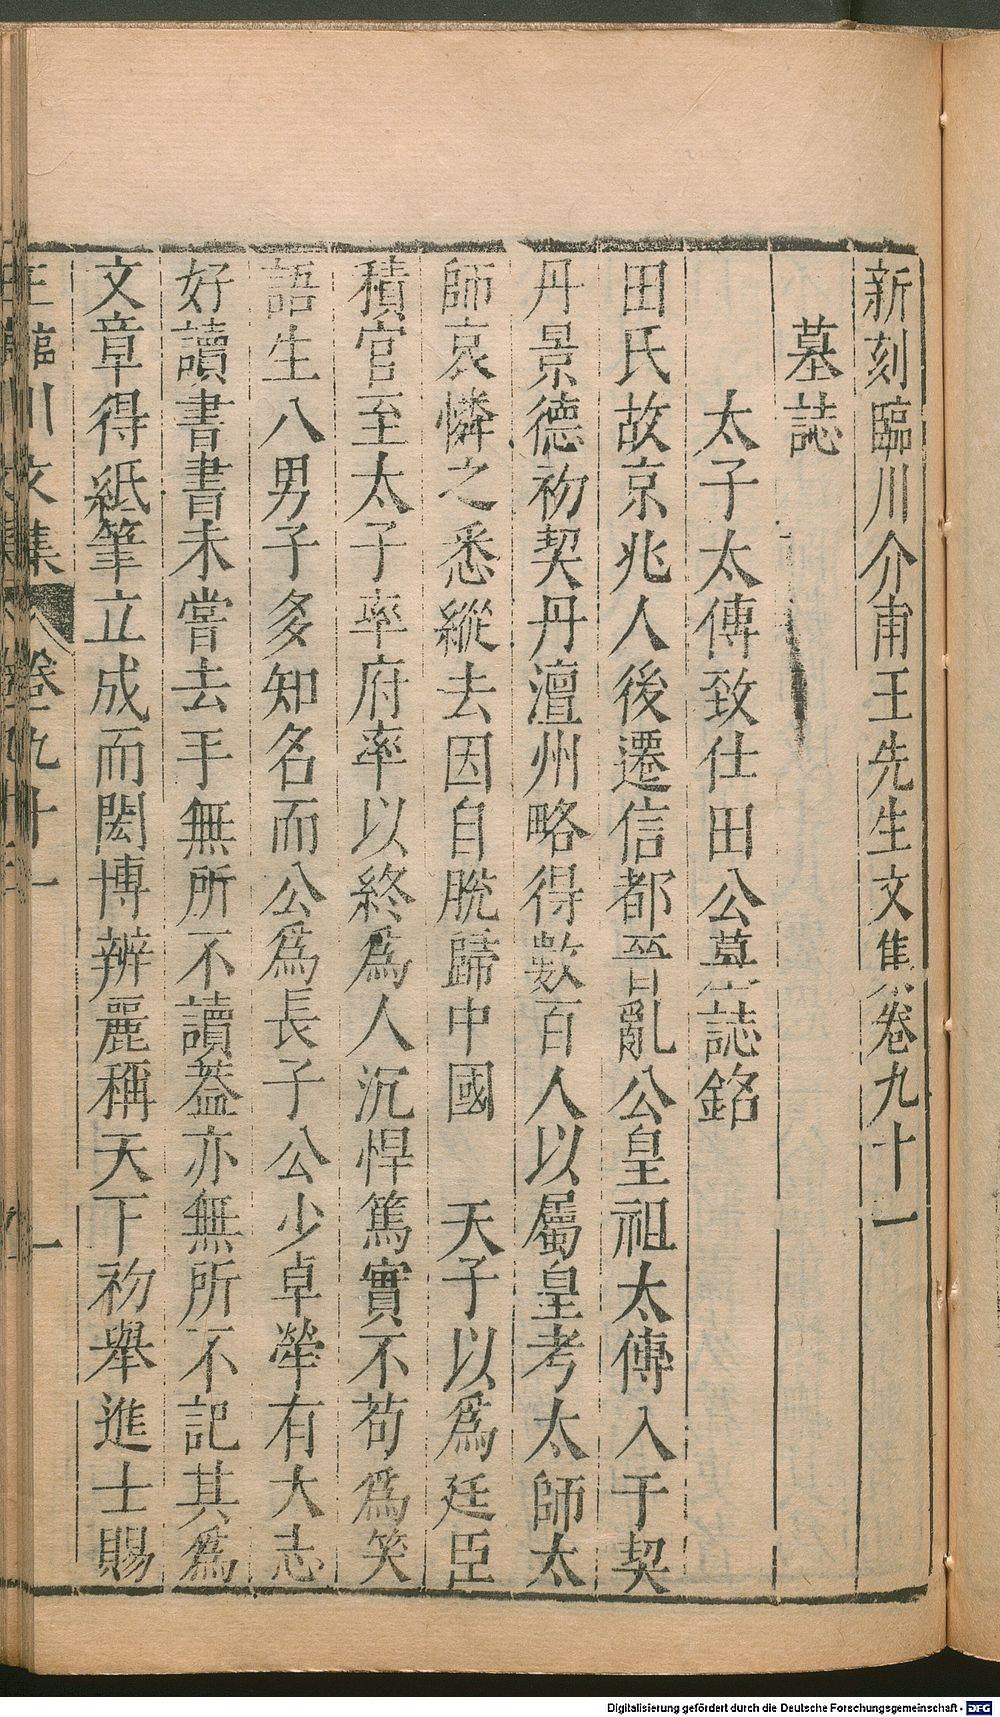 新刻臨川介甫王先生文集卷九十一
墓誌
太子太傳致仕田公墓誌銘
田氏故京兆人後遷信都晉亂公皇祖太傳入于契
丹景德初契丹澶州略得數百人以屬皇考太師太
師哀憐之悉縱去因自脫歸中國　天子以爲廷臣
積官至太子率府率以終爲人沉悍篤實不苟爲笑
語生八男子多知名而公爲長子公少卓犖有大志
好讀書書未嘗去手無所不讀葢亦無所不記其爲
文章得紙筆立成而閎博辨麗稱天下初舉進士賜
王臨川文集 卷九十一 一
Digitalisierung gefördert durch die Deutsche Forschungsgemeinschaft - DFG